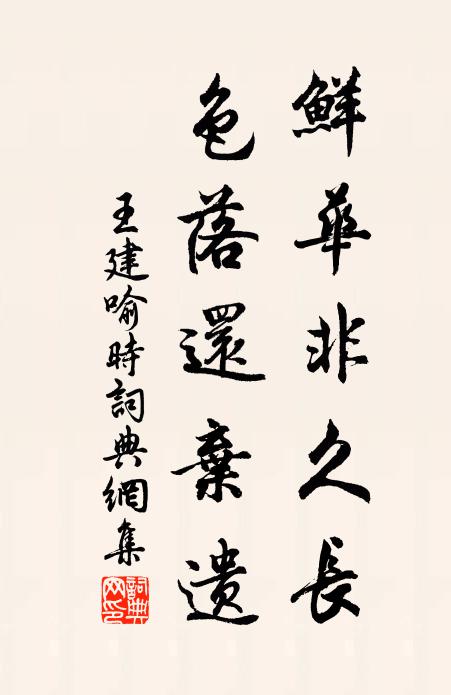 鮮華非久長
色落還棄遺
王建喻時詞典網集
詞典网印